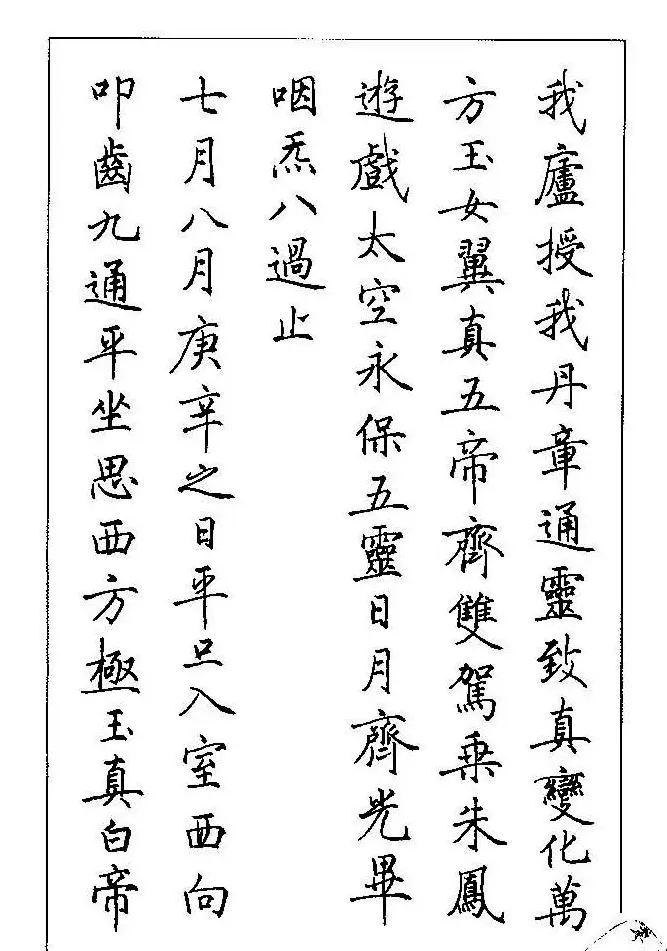 我廬授我丹章通靈致真變化萬
方玉女翼真五帝齊雙駕乗朱鳳
遊戲太空永保五靈日月齊光畢
咽炁八過止
七月八月庚辛之日平旦入室西向
叩齒九通平坐思西方極玉真白帝